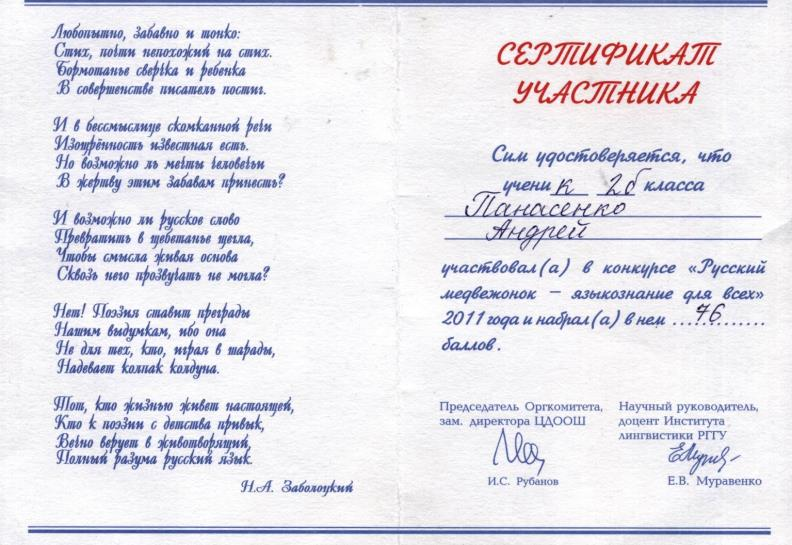 Любопытно, забавно и тонко:
Стих, почти непохожий на стих.
Бормотанье сверчка и ребенка
В совершенстве писатель постиг.
И в бессмыслице скомканной речи
Изощрённость известная есть.
Но возможно ль мечты человечьи
В жертву этим забавам принесть?
И возможно ли русское слово
Превратить в щебетанье щегла,
Чтобы смысла живая основа
Сквозь него прозвучать не могла?
Нет! Поэзия ставит преграды
Нашим выдумкам, ибо она
Не для тех, кто, играя в шарады,
Надевает колпак колдуна.
Тот, кто жизнью живет настоящей,
Кто к поэзии с детства привык,
Вечно верует в животворящий,
Полный разума русский язык.
Н.А. Заболоцкий
СЕРТИФИКАТ
УЧАСТНИКА
Сим удостоверяется, что
ученик 2б класса
Панасенко
Андрей
участвовал(а) в конкурсе «Русский
медвежонок – языкознание для всех»
2011 года и набрал(а) в нем ...76...
баллов.
Председатель Оргкомитета,
зам. директора ЦДООШ
И.С. Рубанов
Научный руководитель,
доцент Института
лингвистики РГГУ
Е.В. Муравенко